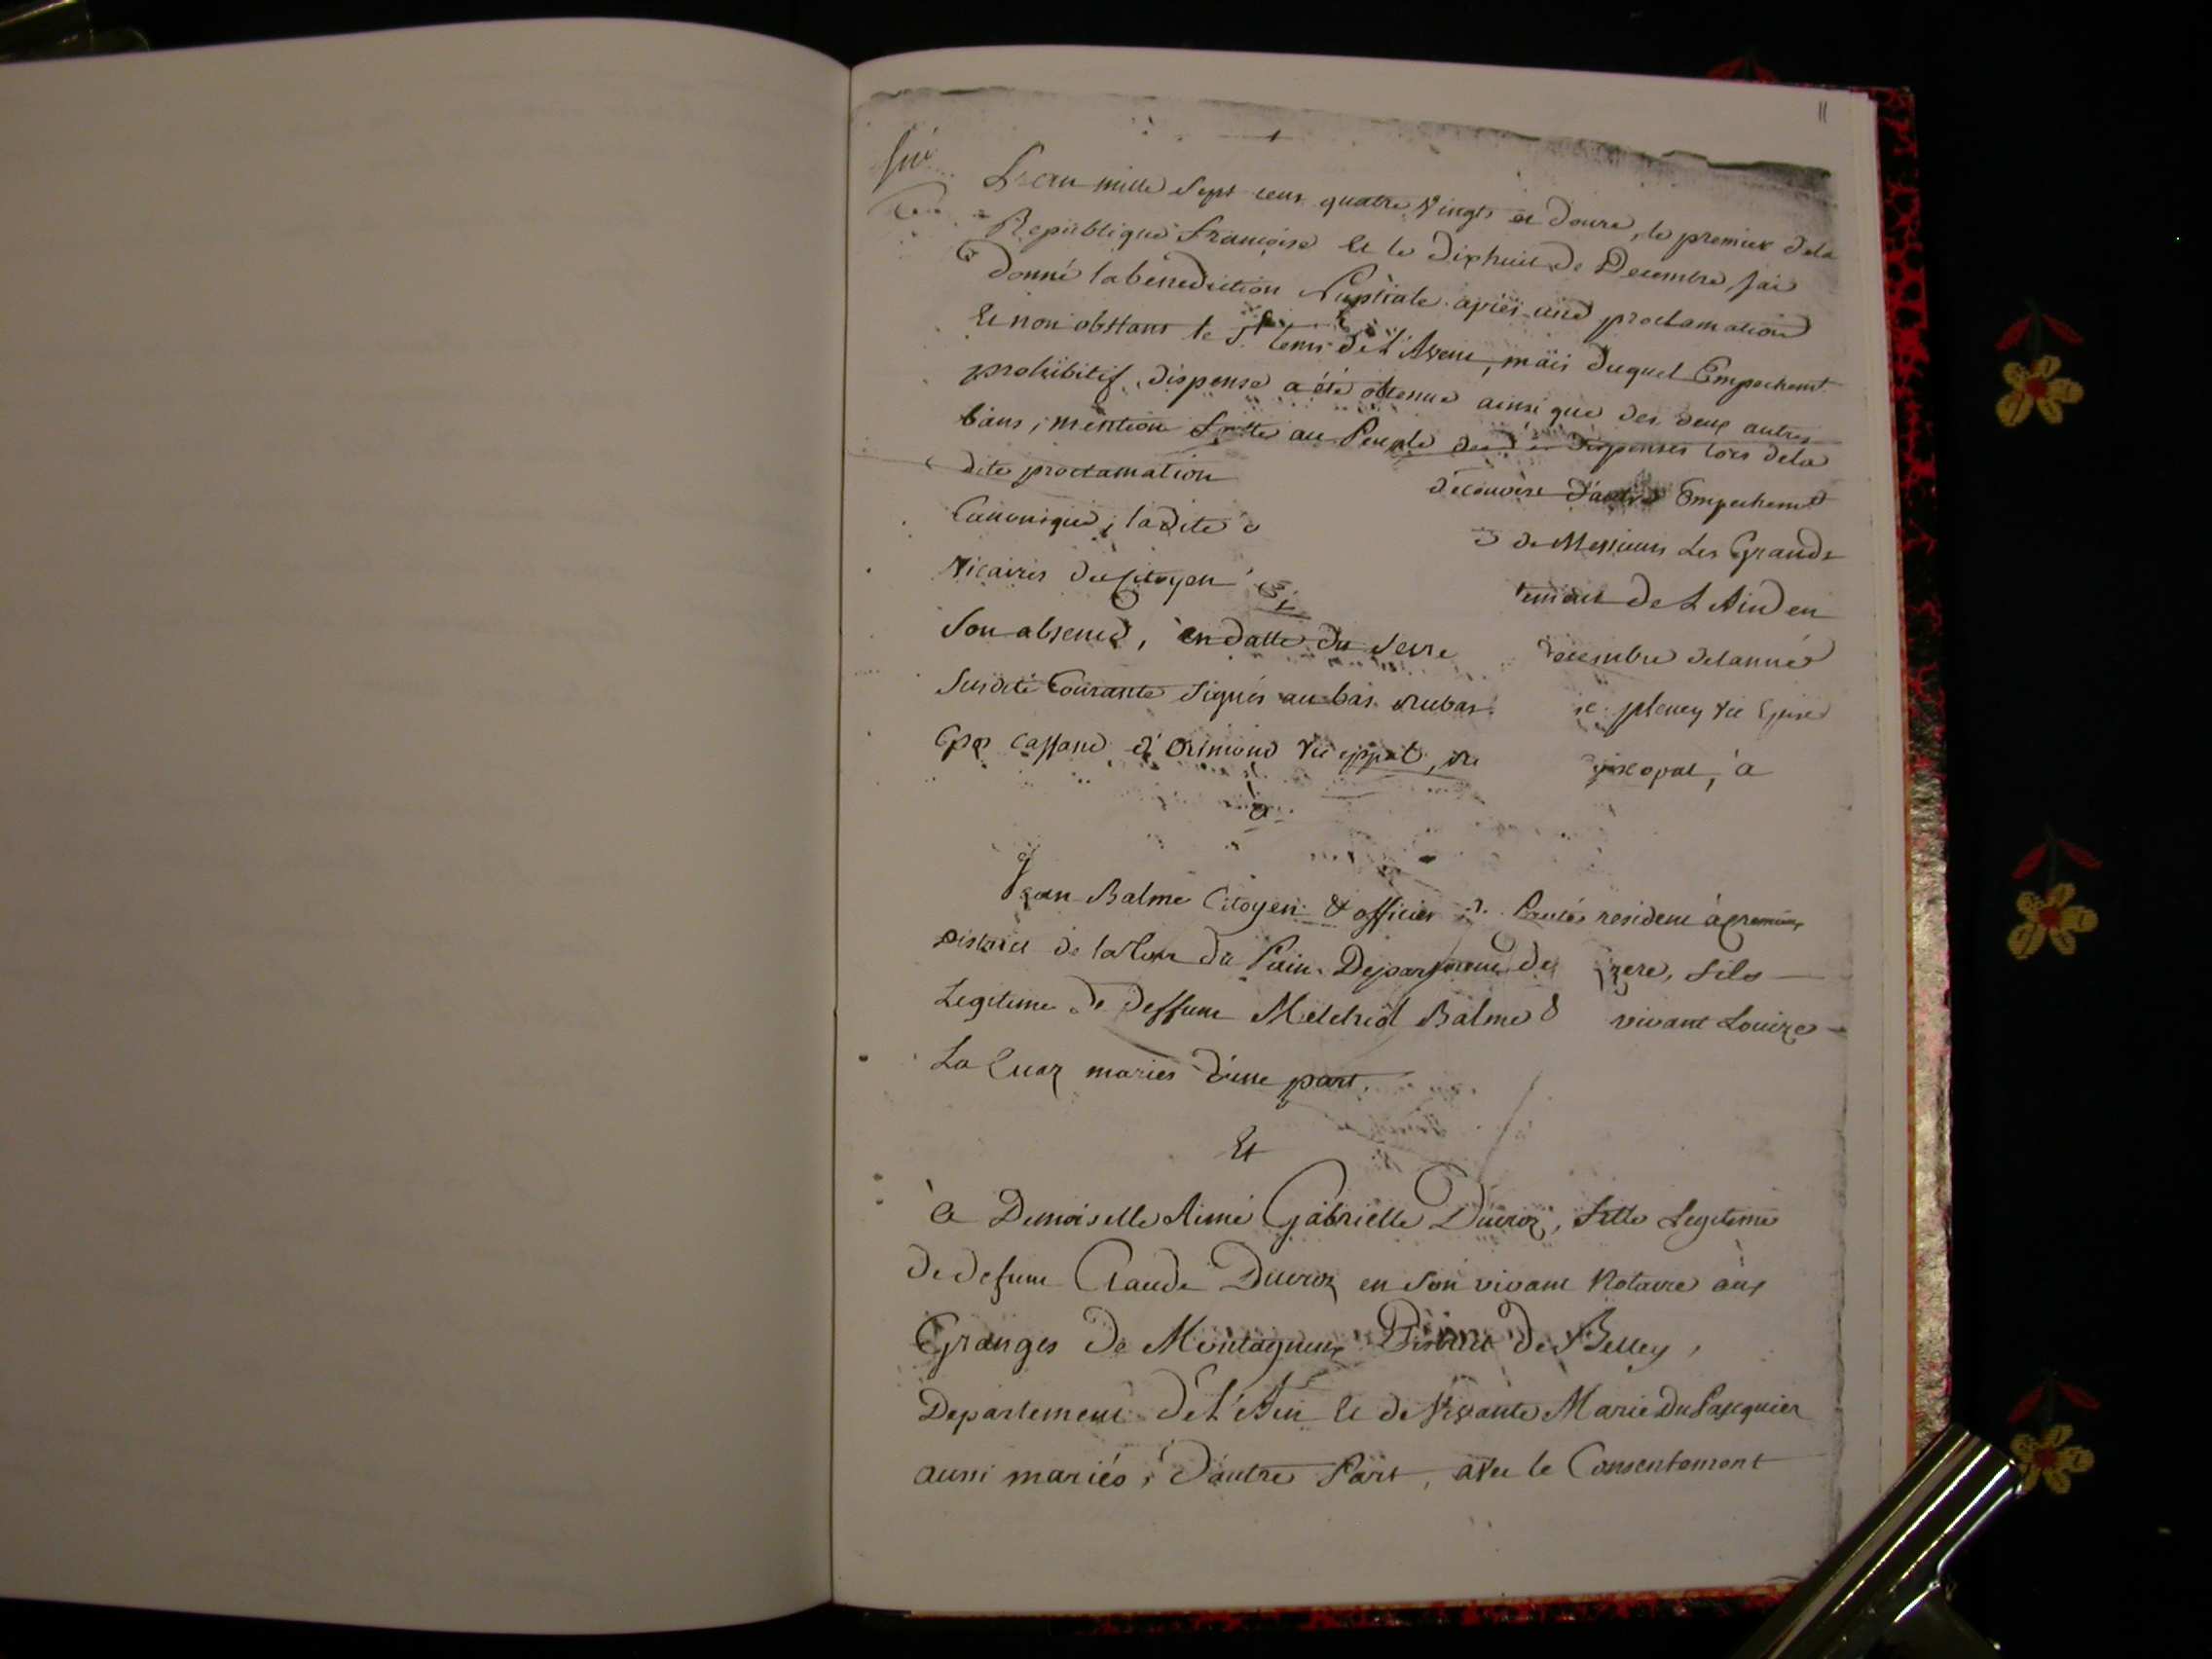 11
L'an mille Sept cens quatre Vingts et douze, le premier dela
Republique Françoise Et le dixhuit de Decembre, jai
donné la bénediction Nuptiale après une proclamation
Et non obstant le St tems de L'Avent, mais duquel Empechemt
prohibitif, dispense a été obtenue ainsi que des deux autres
bans, mention faitte au Peuple des dispenses lors dela
dite proclamation decouvert d'autre Empechemt
Canonique; la dite de Messieurs Les Grands
Vicaires du Citoyen de L Ain en
Son absence, en datte du Seize decembre delannée
Susdite Courante Signés au bas
Cassand d'Orimond
episcopal, à
à
Jean Balme Citoyen & officier de Santé résident à cremieux
District de la Tour du Pain, Departement de Izere, fils
Legitime de deffunt Melchiol Balme & vivant Louize
La Cuaz mariés d'une part.
Et
à Demoiselle Aimé Gabrielle Ducroz, fille Legitime
de defunt Claude Ducroz en Son vivant Notaire aux
Granges de Montagnieux District de Belley,
Departement de L'Ain Et de Vivante Marie DuPasquier
aussi mariés, d'autre Part, avec le Consentement